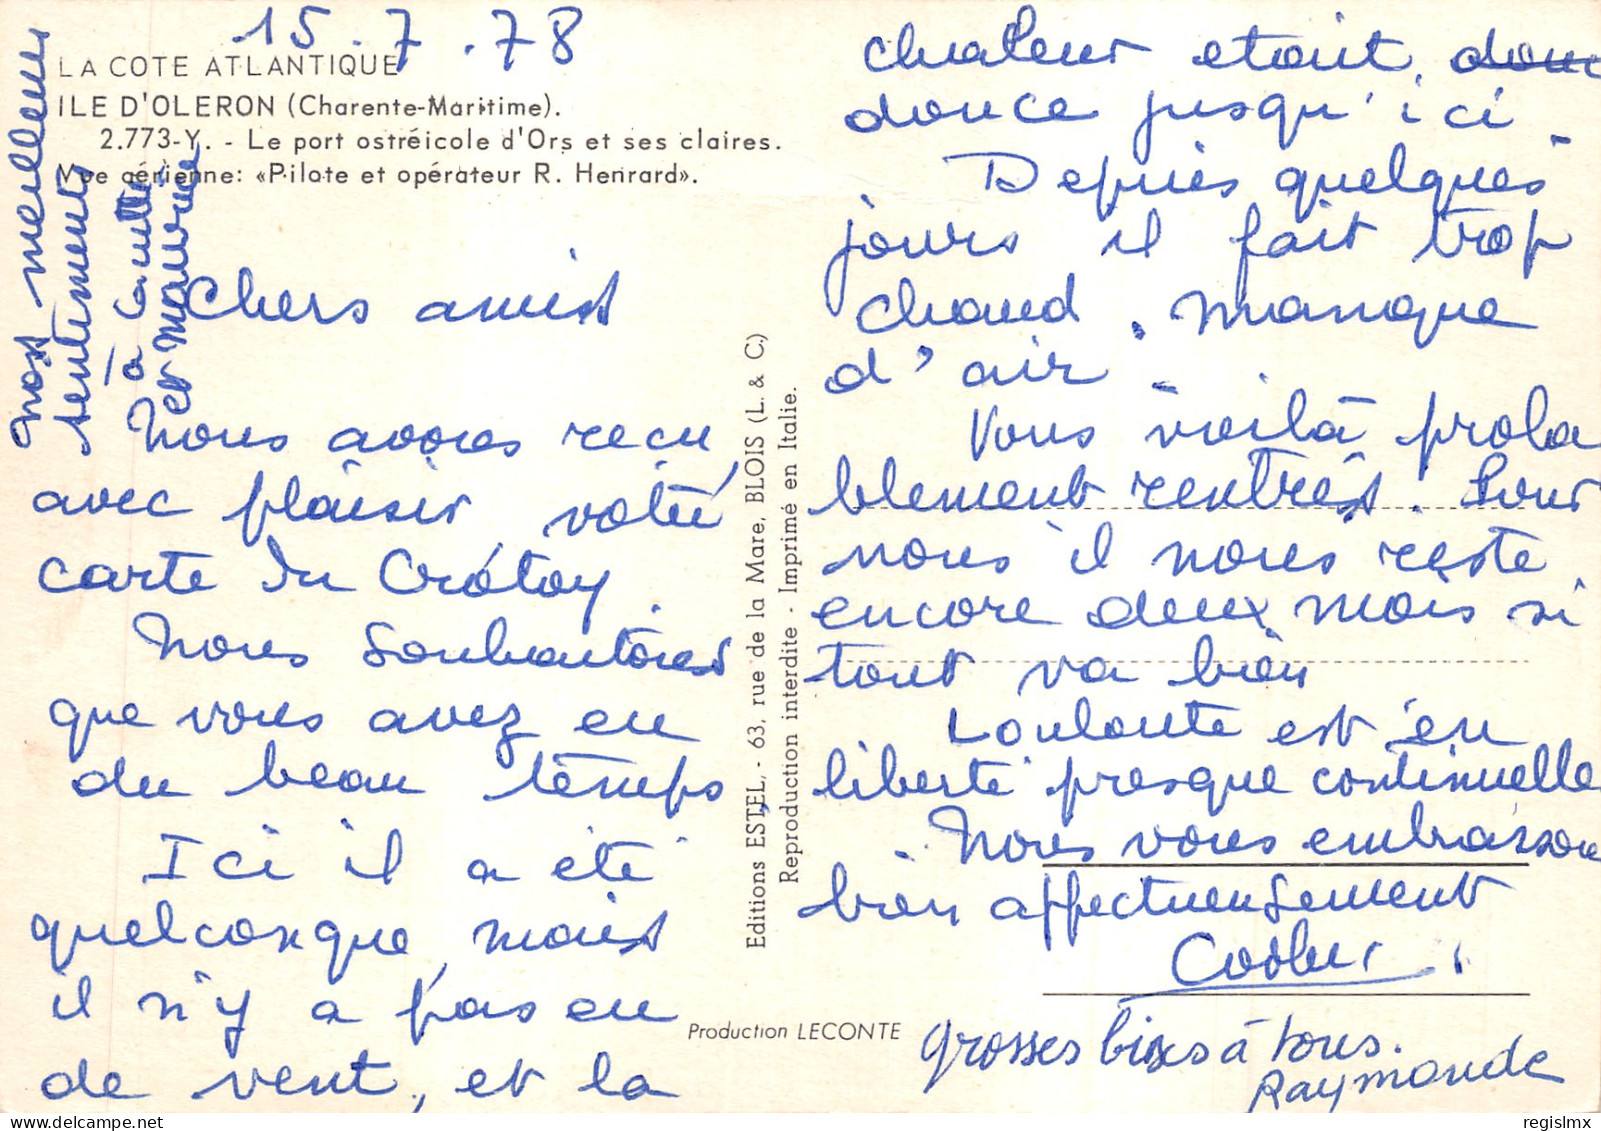 15.7.78
LA COTE ATLANTIQUE
ILE D'OLERON (Charente-Maritime).
2.773-Y. - Le port ostréicole d'Ors et ses claires.
Vue aérienne: «Pilote et opérateur R. Henrard».
Chers amis
Nous avons reçu
avec plaisir votre
carte du Crotoy.
Nous souhaitons
que vous avez eu
du beau temps
Ici il a été
quelconque, mais
il n'y a pas eu
de vent, et la
chaleur etait donc
douce jusqu'ici.
Depuis quelques
jours il fait trop
chaud. manque
d'air.
Vous voilà proba
blement rentrés. Pour
nous il nous reste
encore deux mois si
tout va bien
Louloute est en
liberté presque continuelle
Nous vous embrassons
bien affectueusement
grosses bises à tous.
Raymonde
nos meilleurs
sentiments
à
et Maurice
Editions ESTEL, - 63, rue de la Mare, BLOIS (L. & C.)
Reproduction interdite - Imprimé en Italie.
Production LECONTE
regislmx